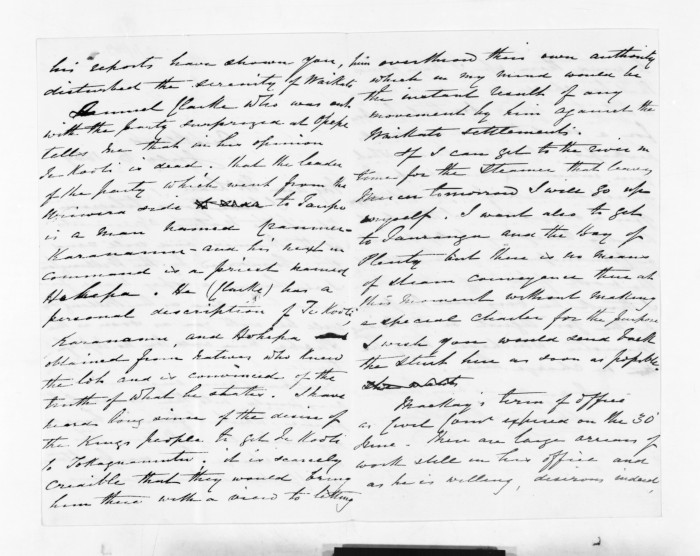 his reports have shown you,
disturbed the serenity of Waikato
Samuel Clarke who was out
with the party surprized at Opepe
tells me that in his opinion
Te Kooti is dead. That the leader
of the party which went from the
Uriwera side to Taupo
is a man named
Karanama - and his next in
command is a priest named
Hohepa. He (Clarke) has a
personal description of Te Kooti,
Karanama, and Hohepa
obtained from natives who knew
the lot and is convinced of the
truth of what he states. I have
heard long since of the desire of
the Kings people to get Te Kooti
to Tokaguamutu. it is scarcely
credible that they would bring
him there with a view to letting
him overthrow their own authority
which in my mind would be
the instant result of any
movement by him against the
Waikato settlements.
If I can get to the river in
time for the Steamer that leaves
Mercer tomorrow I will go up
myself. I want also to get
to Tauranga and the Bay of
Plenty but there is no means
of steam conveyance there at
this moment without making
a special charter for the purpose
I wish you would send back
the Sturt here as soon as possible.
Mackay's term of office
as Civil Comr expired on the 30'
June. There are large arrears of
work still in his office and
as he is willing, desirous indeed,